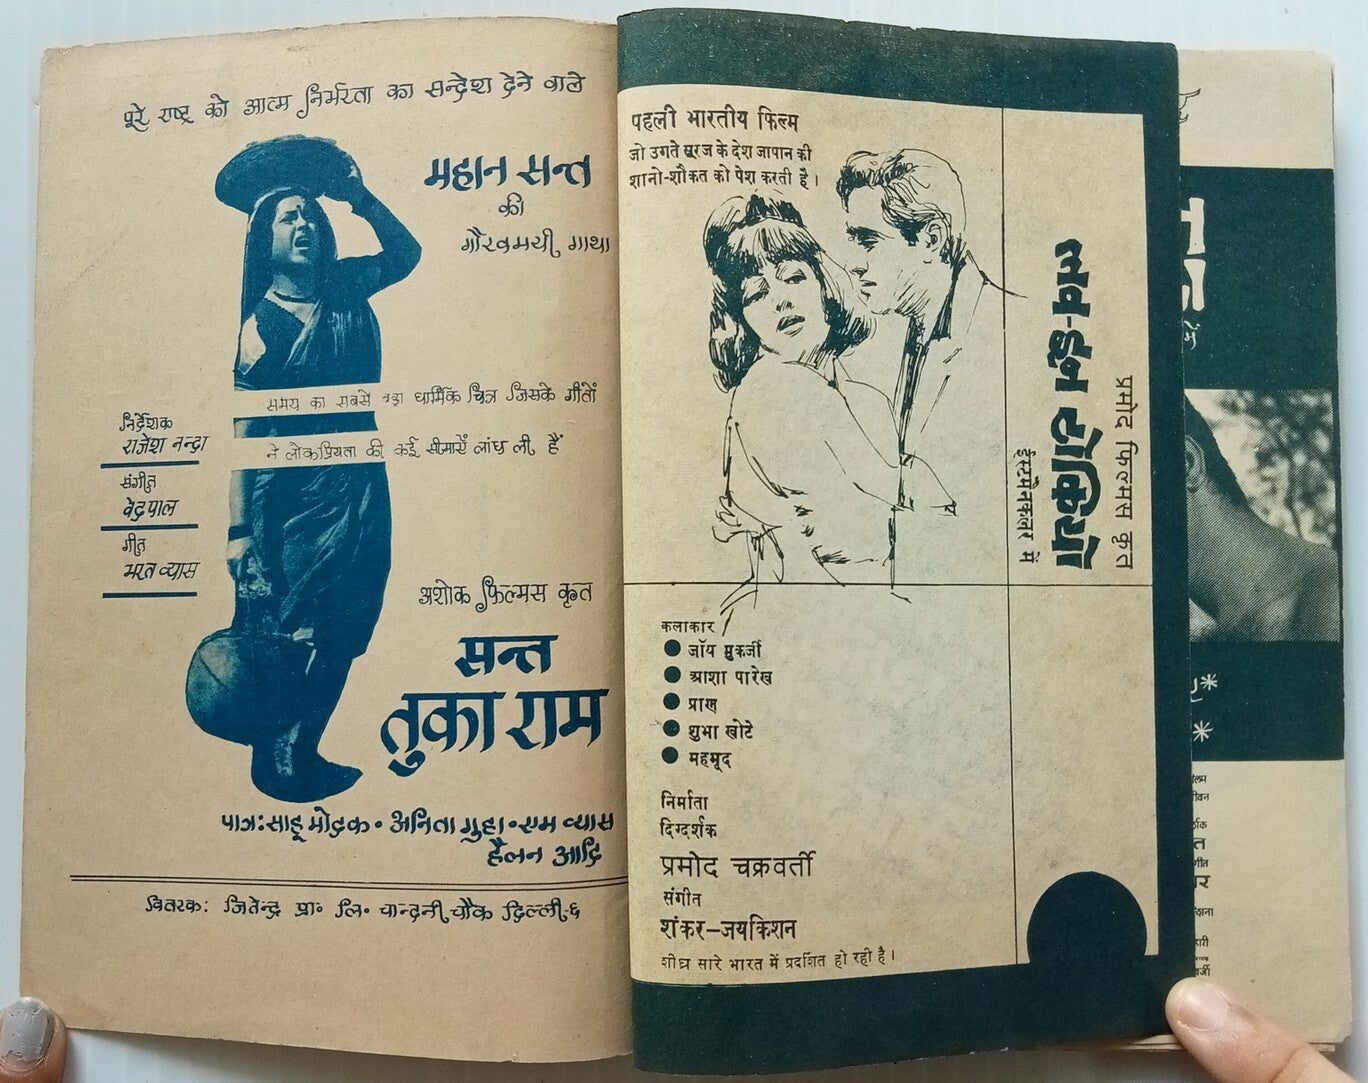 पूरे राष्ट्र को आत्म निर्भरता का सन्देश देने वाले
महान सन्त
की
गौरवमयी गाथा
समय का सबसे बड़ा धार्मिक चित्र जिसके गीतों
ने लोकप्रियता की कई सीमाएँ लांघ ली हैं
निर्देशक
राजेश नन्दा
संगीत
वेदपाल
गीत
भरत व्यास
अशोक फिल्मस कृत
सन्त
तुका राम
पात्र: साहू मोदक • अनिता गुहा • एम व्यास
हैलन आदि
वितरक: जितेन्द्र प्रा॰ लि॰ चान्दनी चौक दिल्ली-६
पहली भारतीय फिल्म
जो उगते सूरज के देश जापान की
शानो-शौकत को पेश करती है।
प्रमोद फिल्मस कृत
लव-इन टोकियो
ईस्टमैनकलर में
कलाकार
● जॉय मुकर्जी
● आशा पारेख
● प्राण
● शुभा खोटे
● महमूद
निर्माता
दिग्दर्शक
प्रमोद चक्रवर्ती
संगीत
शंकर–जयकिशन
शीघ्र सारे भारत में प्रदर्शित हो रही है।